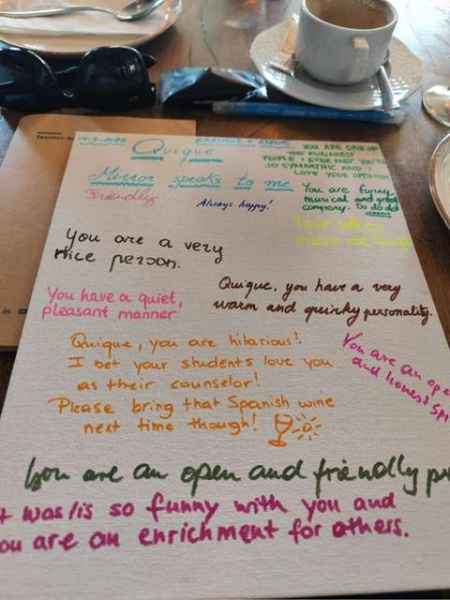 Quique
YOU ARE ONE OF
THE FUNNIEST
PEOPLE I EVER MET
SO SYMPATHIC AND I
LOVE YOUR
Mirror speaks to me
Friendly
Always happy!
You are funny,
musical and great
company.
You are a very
nice person.
Quique, you have a very
warm and quirky personality.
You have a quiet,
pleasant manner
Quique, you are hilarious!
I bet your students love you
as their counselor!
Please bring that Spanish wine
next time though!
You are an ope
and honest Sp
You are an open and friendly p
t was/is so funny with you and
ou are an enrichment for others.